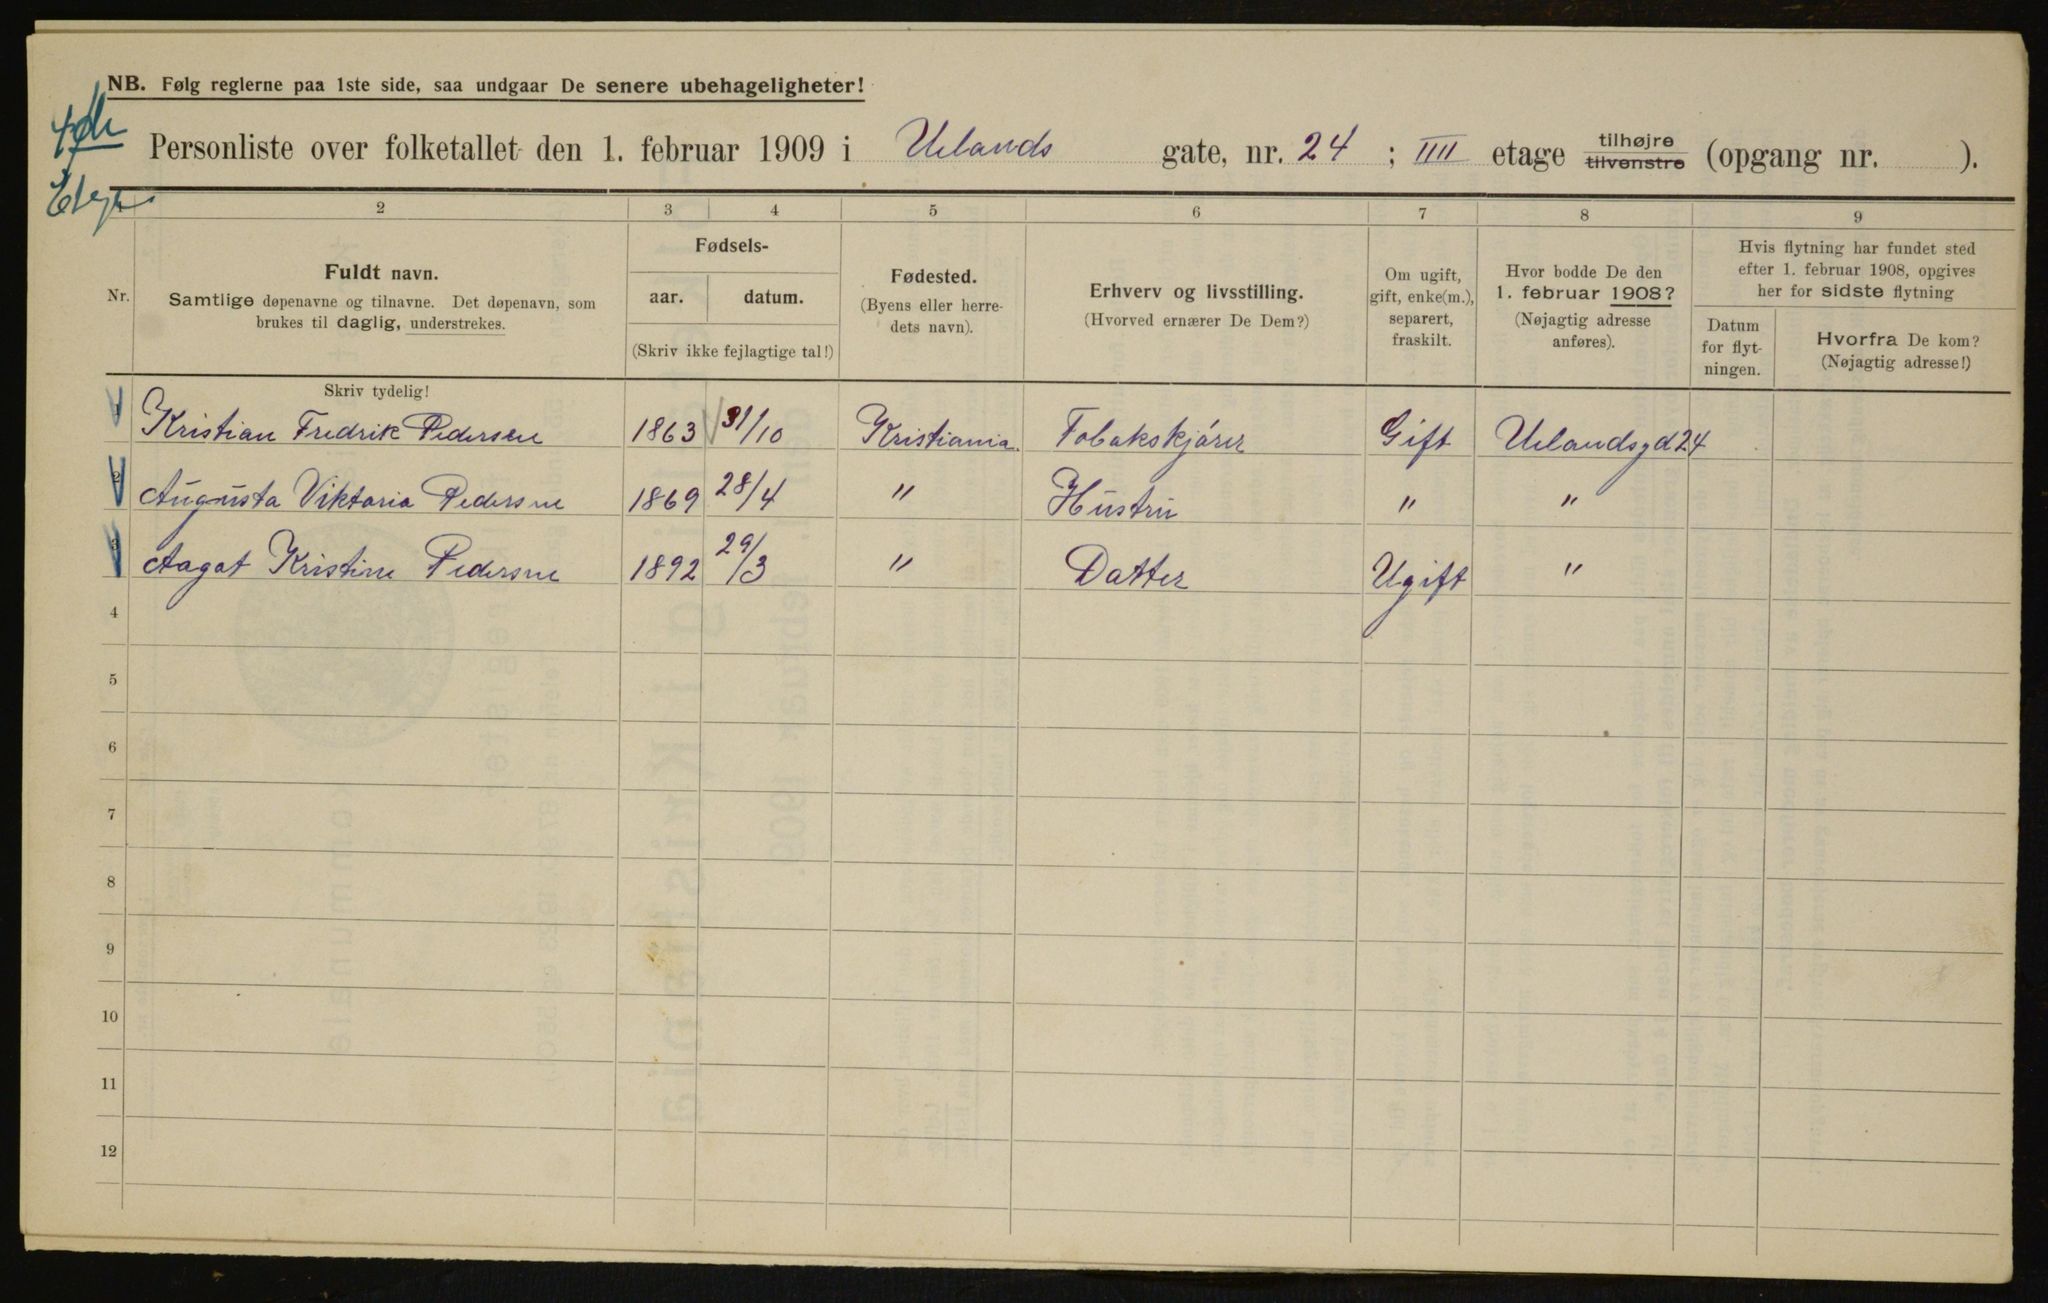 NB. Følg reglerne paa 1ste side, saa undgaar De senere ubehageligheter!
4de
Etage
Personliste over folketallet den 1. februar 1909 i Uelands gate, nr. 24 ; IIII etage tilhøjre tilvenstre (opgang nr. ).
2 3 4 5 6 7 8 9
Nr.
Fuldt navn.
Samtlige døpenavne og tilnavne. Det døpenavn, som
brukes til daglig, understrekes.
Fødsels-
aar. datum.
(Skriv ikke fejlagtige tal!)
Fødested.
(Byens eller herre-
dets navn).
Erhverv og livsstilling.
(Hvorved ernærer De Dem?)
Om ugift,
gift, enke(m.),
separert,
fraskilt.
Hvor bodde De den
1. februar 1908?
(Nøjagtig adresse
anføres).
Hvis flytning har fundet sted
efter 1. februar 1908, opgives
her for sidste flytning
Datum
for flyt-
ningen.
Hvorfra De kom?
(Nøjagtig adresse!)
Skriv tydelig!
1 Kristian Fredrik Pedersen 1863 31/10 Kristiania. Tobakskjører Gift Uelandsgd 24
2 Augusta Viktoria Pedersne 1869 28/4 " Hustru " "
3 Aagot Kristine Pedersne 1892 29/3 " Datter Ugift "
4
5
6
7
8
9
10
11
12